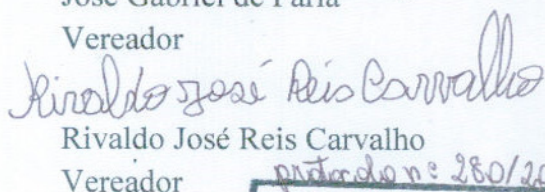 José Gabriel de Faria
Vereador
Rivaldo José Reis Carvalho
Rivaldo José Reis Carvalho
Vereador
protocolo nº 280/20